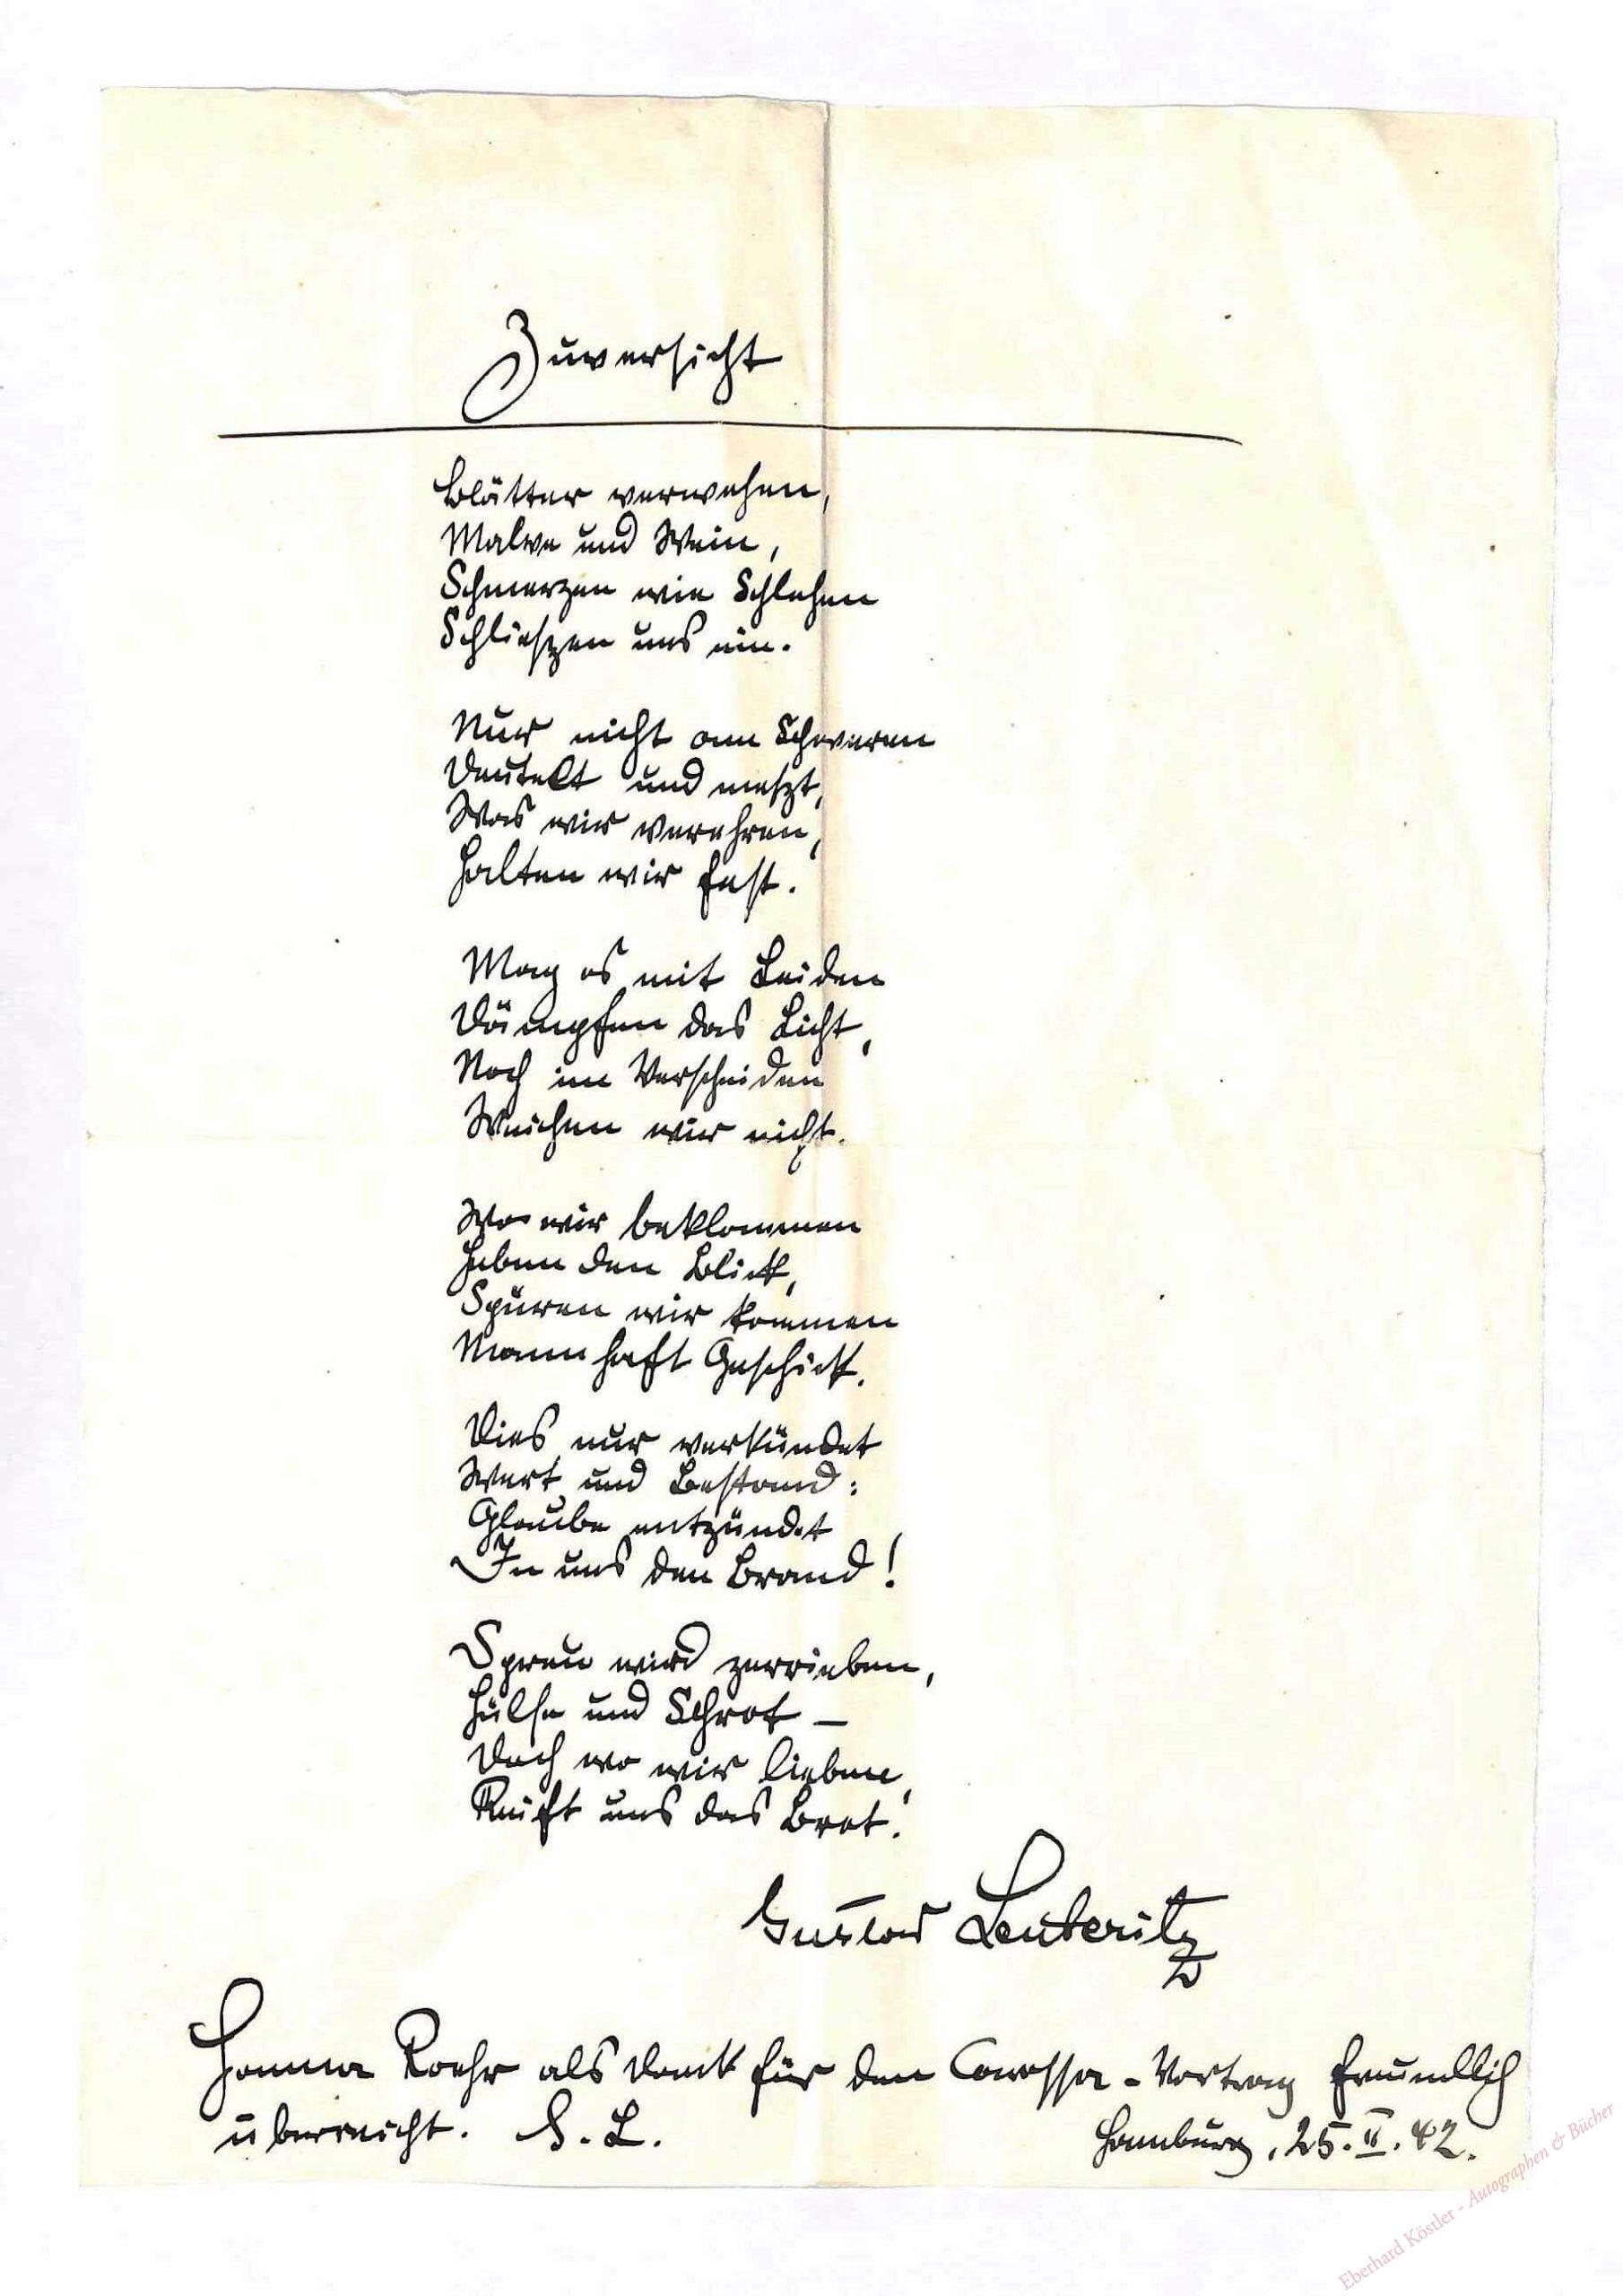 Zuversicht
Blätter verwehen,
Malve und Wein,
Schmerzen wie Schlehen
Schlieszen uns ein.
Nur nicht am Schweren
Deutelt und meszt,
Was wir verehren,
Halten wir fest.
Mag es mit Leiden
Dämpfen das Licht,
Noch im Verscheiden
Weichen wir nicht.
Wo wir beklommen
Heben den Blick,
Spüren wir kommen
Mannhaft Geschick.
Dies nur verkündet
Wert und Bestand:
Glaube entzündet
In uns den Brand!
Spreu wird zerrieben,
Hülse und Schrot —
Doch wo wir lieben,
Reift uns das Brot.
Gustav Leuteritz
Hanna Roehr als Dank für den Carossa-Vortrag freundlich
überreicht. G. L.
Hamburg, 25. II. 42.
Eberhard Köstler - Autographen & Bücher